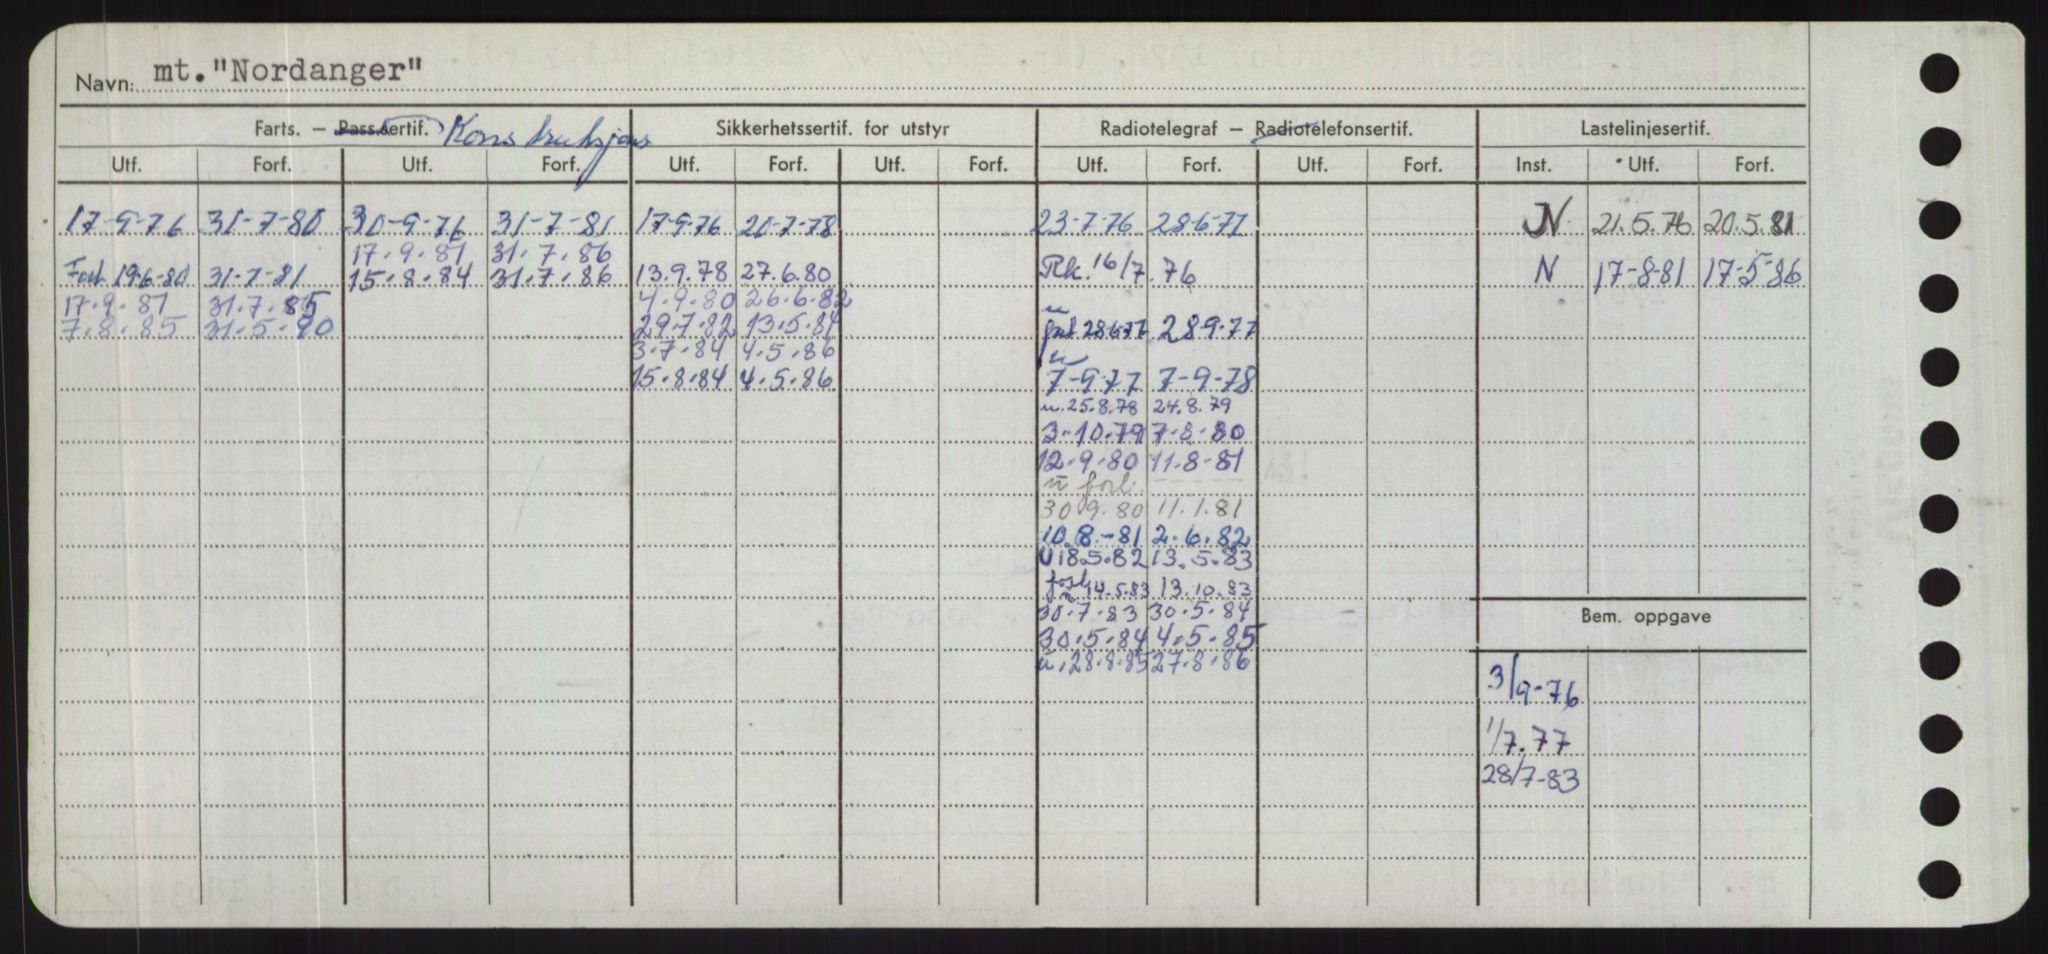 Navn: mt. "Nordanger"
Farts. — Pass.sertif. Konstruksjons Sikkerhetssertif. for utstyr Radiotelegraf — Radiotelefonsertif. Lastelinjesertif.
Utf. Forf. Utf. Forf. Utf. Forf. Utf. Forf. Utf. Forf. Utf. Forf. Inst. Utf. Forf.
17-9-76 31-7-80 30-9-76 31-7-81 17-9-76 20-7-78 23-7-76 28-6-77 N 21.5.76 20.5.81
17.9.81 31.7.86
Forl 19-6-80 31-7-81 15.8.84 31.7.86 13.9.78 27.6.80 Rk. 16/7.76 N 17-8-81 17-5-86
17.9.81 31.7.85 4.9.80 26.6.82
7.8.85 31.5.90 29.7.82 13.5.84 28-6-77 28-9-77
3.7.84 4.5.86
15.8.84 4.5.86 7-9-77 7-9-78
u. 25.8.78 24.8.79
3-10.79 7-8-80
12.9.80 11.8-81
u forl.
30.9.80 11.1.81
10.8.-81 2.6.82
U 18.5.82 13.5.83
forl u 14.5.83 13.10.83
30.7.83 30.5.84
Bem. oppgave
30.5.84 4.5.85
u. 28.8.85 27.8.86
3/9-76
1/7.77
28/7-83